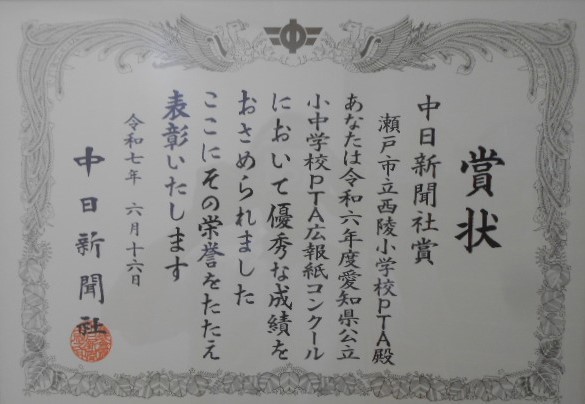 賞状
中日新聞社賞
瀬戸市立西陵小学校PTA殿
あなたは令和六年度愛知県公立
小中学校PTA広報紙コンクール
において優秀な成績を
おさめられました
ここにその栄誉をたたえ
表彰いたします
令和七年 六月十六日
中日新聞社